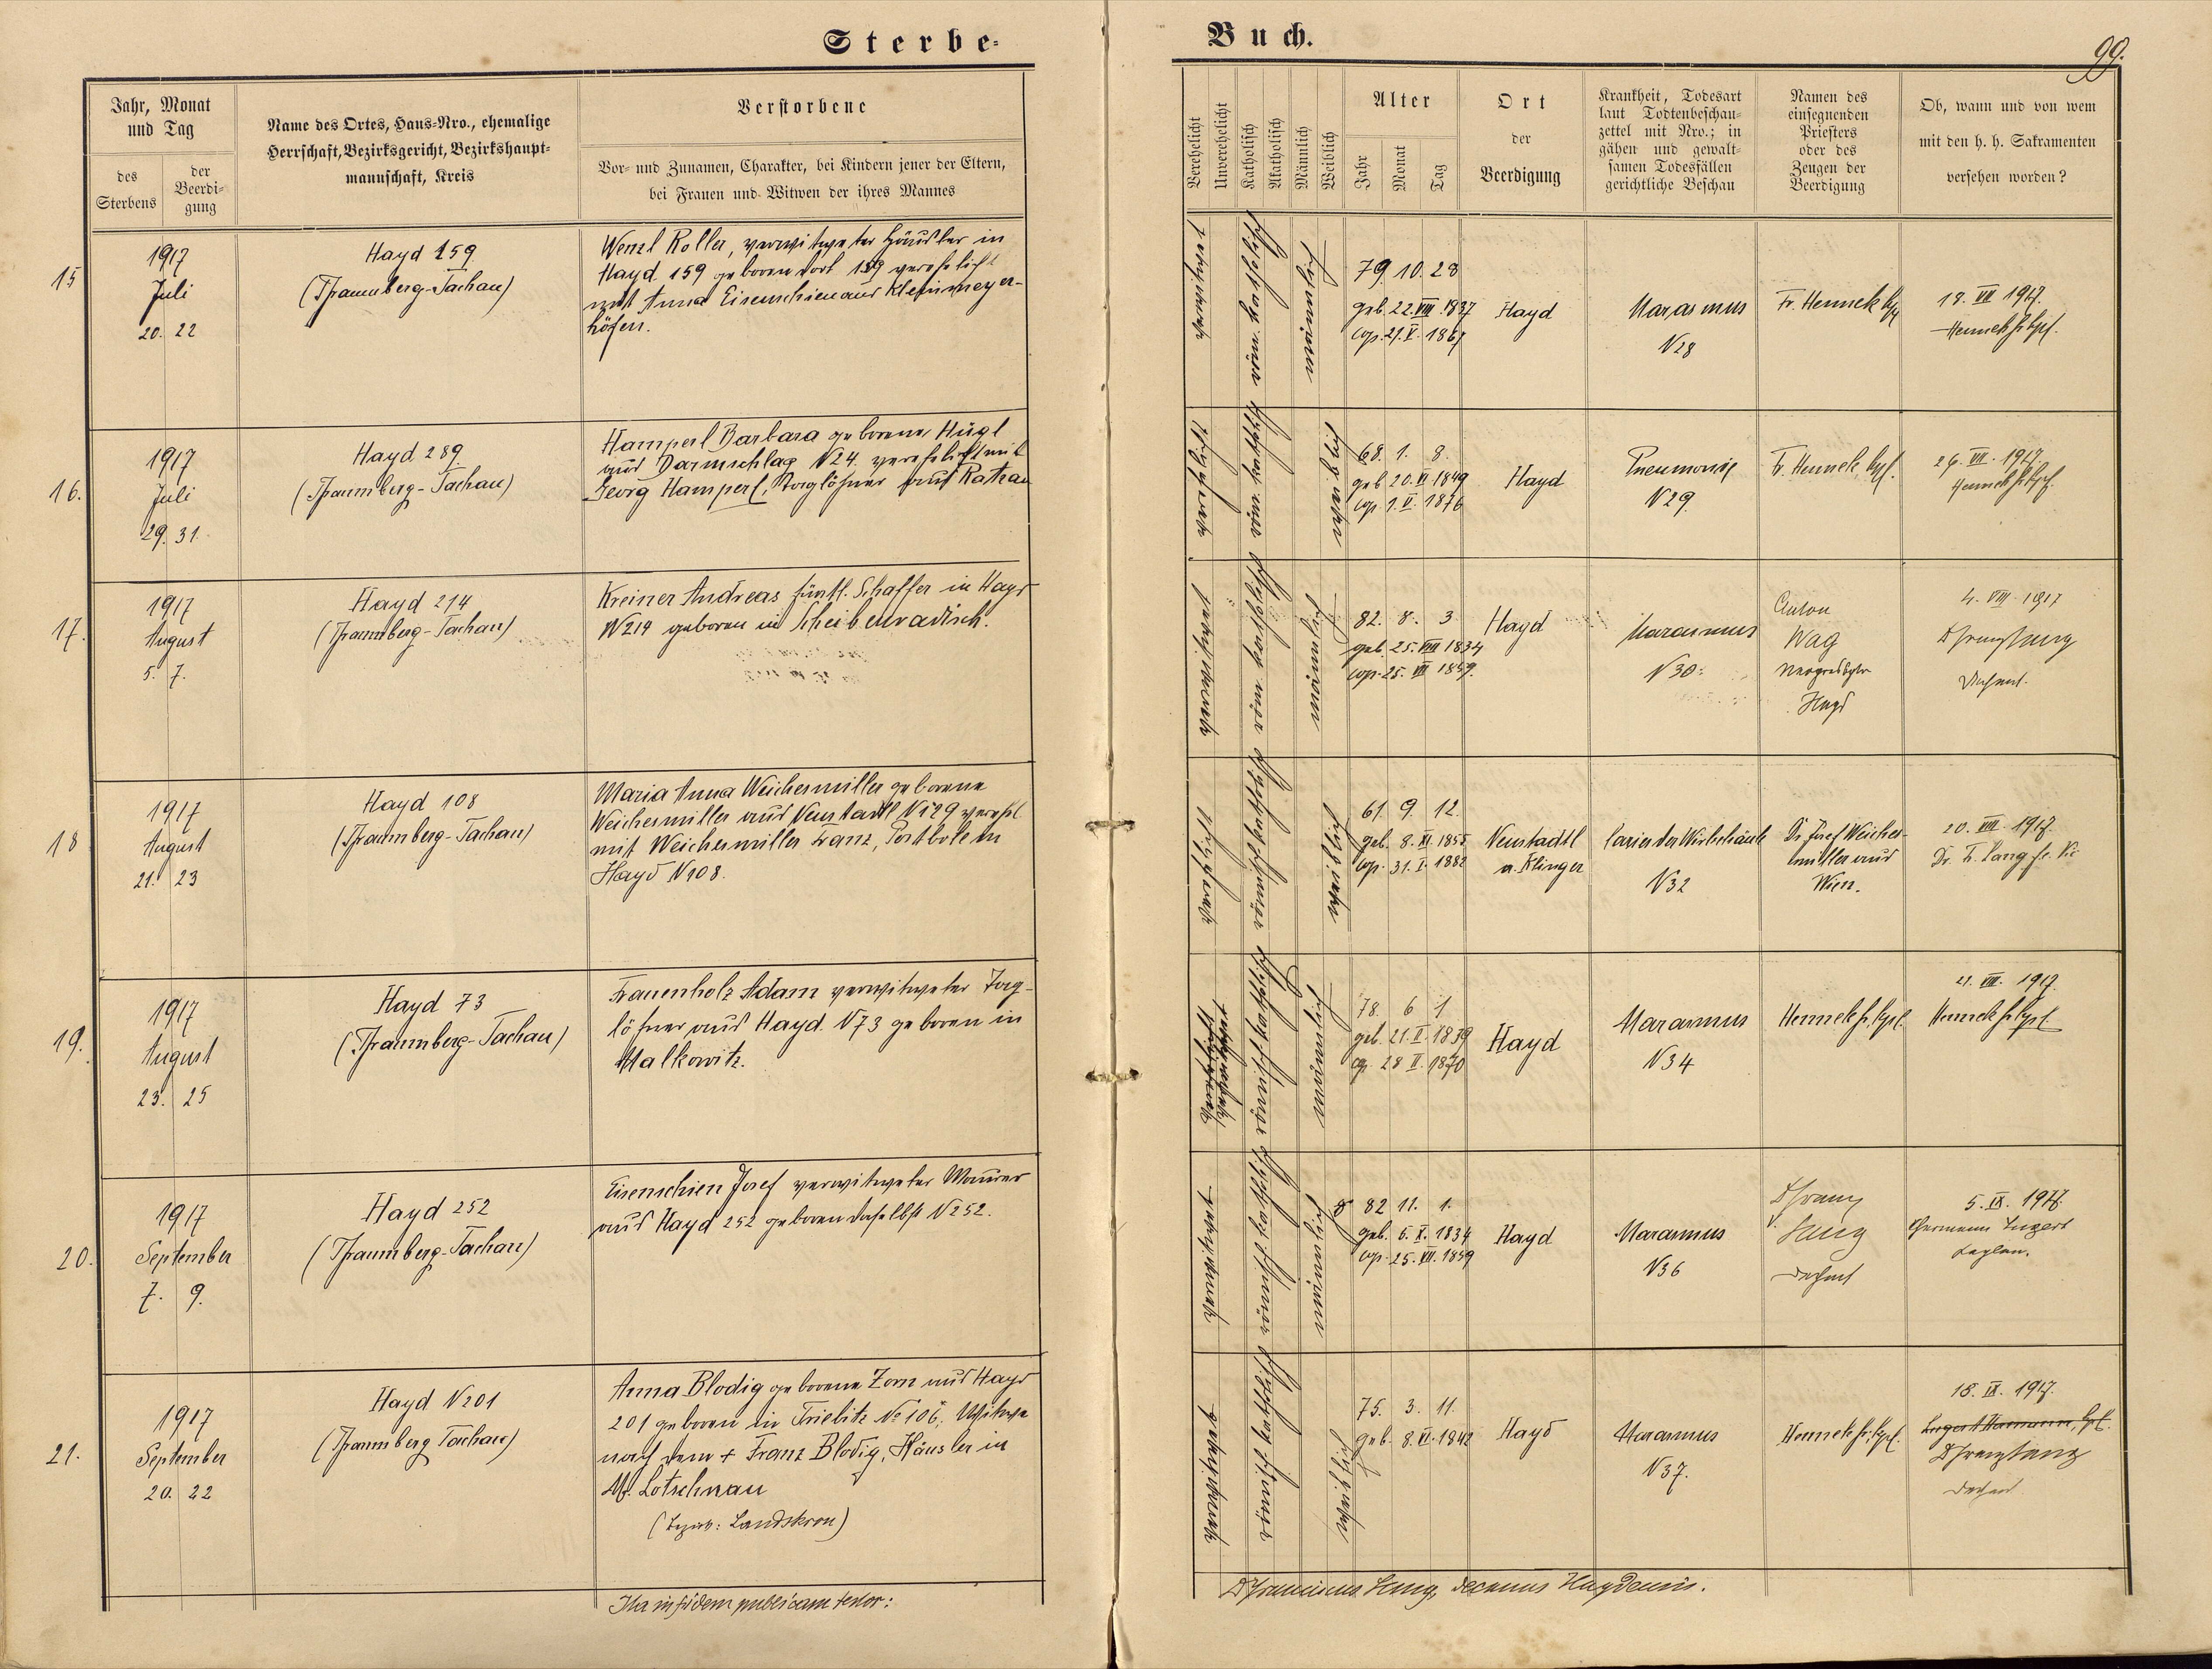 Sterbe-
Buch.
99.
Jahr, Monat
und Tag
des
Sterbens
der
Beerdi-
gung
Name des Ortes, Haus-Nro., ehemalige
Herrschaft, Bezirksgericht, Bezirkshaupt-
mannschaft, Kreis
Verstorbene
Vor- und Zunamen, Charakter, bei Kindern jener der Eltern,
bei Frauen und Witwen der ihres Mannes
Verehelicht
Unverehelicht
Katholisch
Akatholisch
Männlich
Weiblich
Alter
Jahr
Monat
Tag
Ort
der
Beerdigung
Krankheit, Todesart
laut Todtenbeschau-
zettel mit Nro.; in
gähen und gewalt-
samen Todesfällen
gerichtliche Beschau
Namen des
einsegnenden
Priesters
oder des
Zeugen der
Beerdigung
Ob, wann und von wem
mit den h. h. Sakramenten
versehen worden?
15
1917
Juli
20. 22
Hayd 159
(Pfraumberg-Tachau)
Wenzl Roller, verwitweter Häusler in
Hayd 159 geboren dort 159 verehelicht
mit Anna Eisenschien aus Kleinmeyer-
höfen.
verwitwet
röm. katholisch
männlich
79. 10. 28
geb. 22. VIII. 1837
cop. 21. V. 1867
Hayd
Marasmus
N 28
Fr. Hennek
18. VII 1917.
Hennek
16.
1917
Juli
29. 31.
Hayd 289
(Pfraumberg-Tachau)
Hamperl Barbara geborene Hügl
aus Darmschlag N 24. verehelicht mit
Georg Hamperl, Taglöhner aus Rathau
verehelicht
röm. kathol.
weiblich
68. 1. 8.
geb. 20. VI 1849
cop. 1. V. 1876
Hayd
Pneumonie
N 29.
Fr. Hennek
VII. 1917.
Hennek
17.
1917
August
5. 7.
Hayd 214
(Pfraumberg-Tachau)
Kreiner Andreas fürstl. Schaffer in Hayd
N 214 geboren in Scheibenradisch.
verwitwet
röm. katholisch
männlich
82. 8. 3.
geb. 25. VIII 1834
cop. 25. VII 1859.
Hayd
Marasmus
N 30.
Anton
Wag
Hayd
4. VIII. 1917
Dechant.
18
1917
August
21. 23
Hayd 108
(Pfraumberg-Tachau)
Maria Anna Weichesmiller geborene
Weichesmiller aus Neustadtl N 129 verehl.
mit Weichesmiller Franz, Postbote in
Hayd N 108.
verehelicht
römisch katholisch
weiblich
61. 9. 12.
geb. 8. XI. 1855
cop. 31. I. 1882
Neustadtl
a. Klinger
Caries der Wirbelsäule
N 32
Dr. Josef Weiches-
miller aus
Wien.
20. VIII. 1917.
Dr. Fr. Lang
19.
1917
August
23. 25
Hayd 73
(Pfraumberg-Tachau)
Frauenholz Adam verwitweter Tag-
löhner aus Hayd N 73 geboren in
Malkowitz.
verwitwet
römisch katholisch
männlich
78. 6 1
geb. 21. II. 1839
cop. 28 II. 1870
Hayd
Marasmus
N 34
Hennek
21. VIII. 1917.
Hennek
20.
1917
September
7. 9.
Hayd 252
(Pfraumberg-Tachau)
Eisenschien Josef verwitweter Maurer
aus Hayd 252 geboren daselbst N 252.
verwitwet
römisch katholisch
männlich
82 11. 1.
geb. 6. X. 1834
cop. 25. VII. 1859
Hayd
Marasmus
N 36
Dechant
5. IX. 1917.
Hermann Lugert
Kaplan.
21.
1917
September
20. 22
Hayd N 201
(Pfraumberg Tachau)
Anna Blodig geborene Zorn aus Hayd
201 geboren in Triebitz No 106. Witwe
nach dem + Franz Blodig, Häusler in
M. Lotschnau
(Bezirk: Landskron)
verwitwet
römisch katholisch
weiblich
75. 3. 11.
geb. 8. VI. 1842
Hayd
Marasmus
N 37.
Hennek
18. IX. 1917.
Lugert Hermann
Dechant
Ita in fidem publicam testor:
decanus Haydensis.